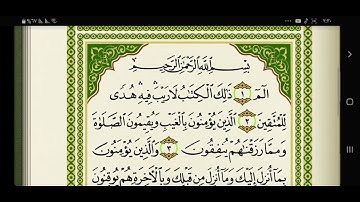 بِسْمِ اللَّهِ الرَّحْمَٰنِ الرَّحِيمِ
الٓمٓ ١ ذَٰلِكَ الْكِتَابُ لَا رَيْبَ فِيهِ هُدًى
لِّلْمُتَّقِينَ ٢ الَّذِينَ يُؤْمِنُونَ بِالْغَيْبِ وَيُقِيمُونَ الصَّلَوٰةَ
وَمِمَّا رَزَقْنَٰهُمْ يُنفِقُونَ ٣ وَالَّذِينَ يُؤْمِنُونَ
بِمَا أُنزِلَ إِلَيْكَ وَمَا أُنزِلَ مِن قَبْلِكَ وَبِالْآخِرَةِ هُمْ يُوقِنُونَ